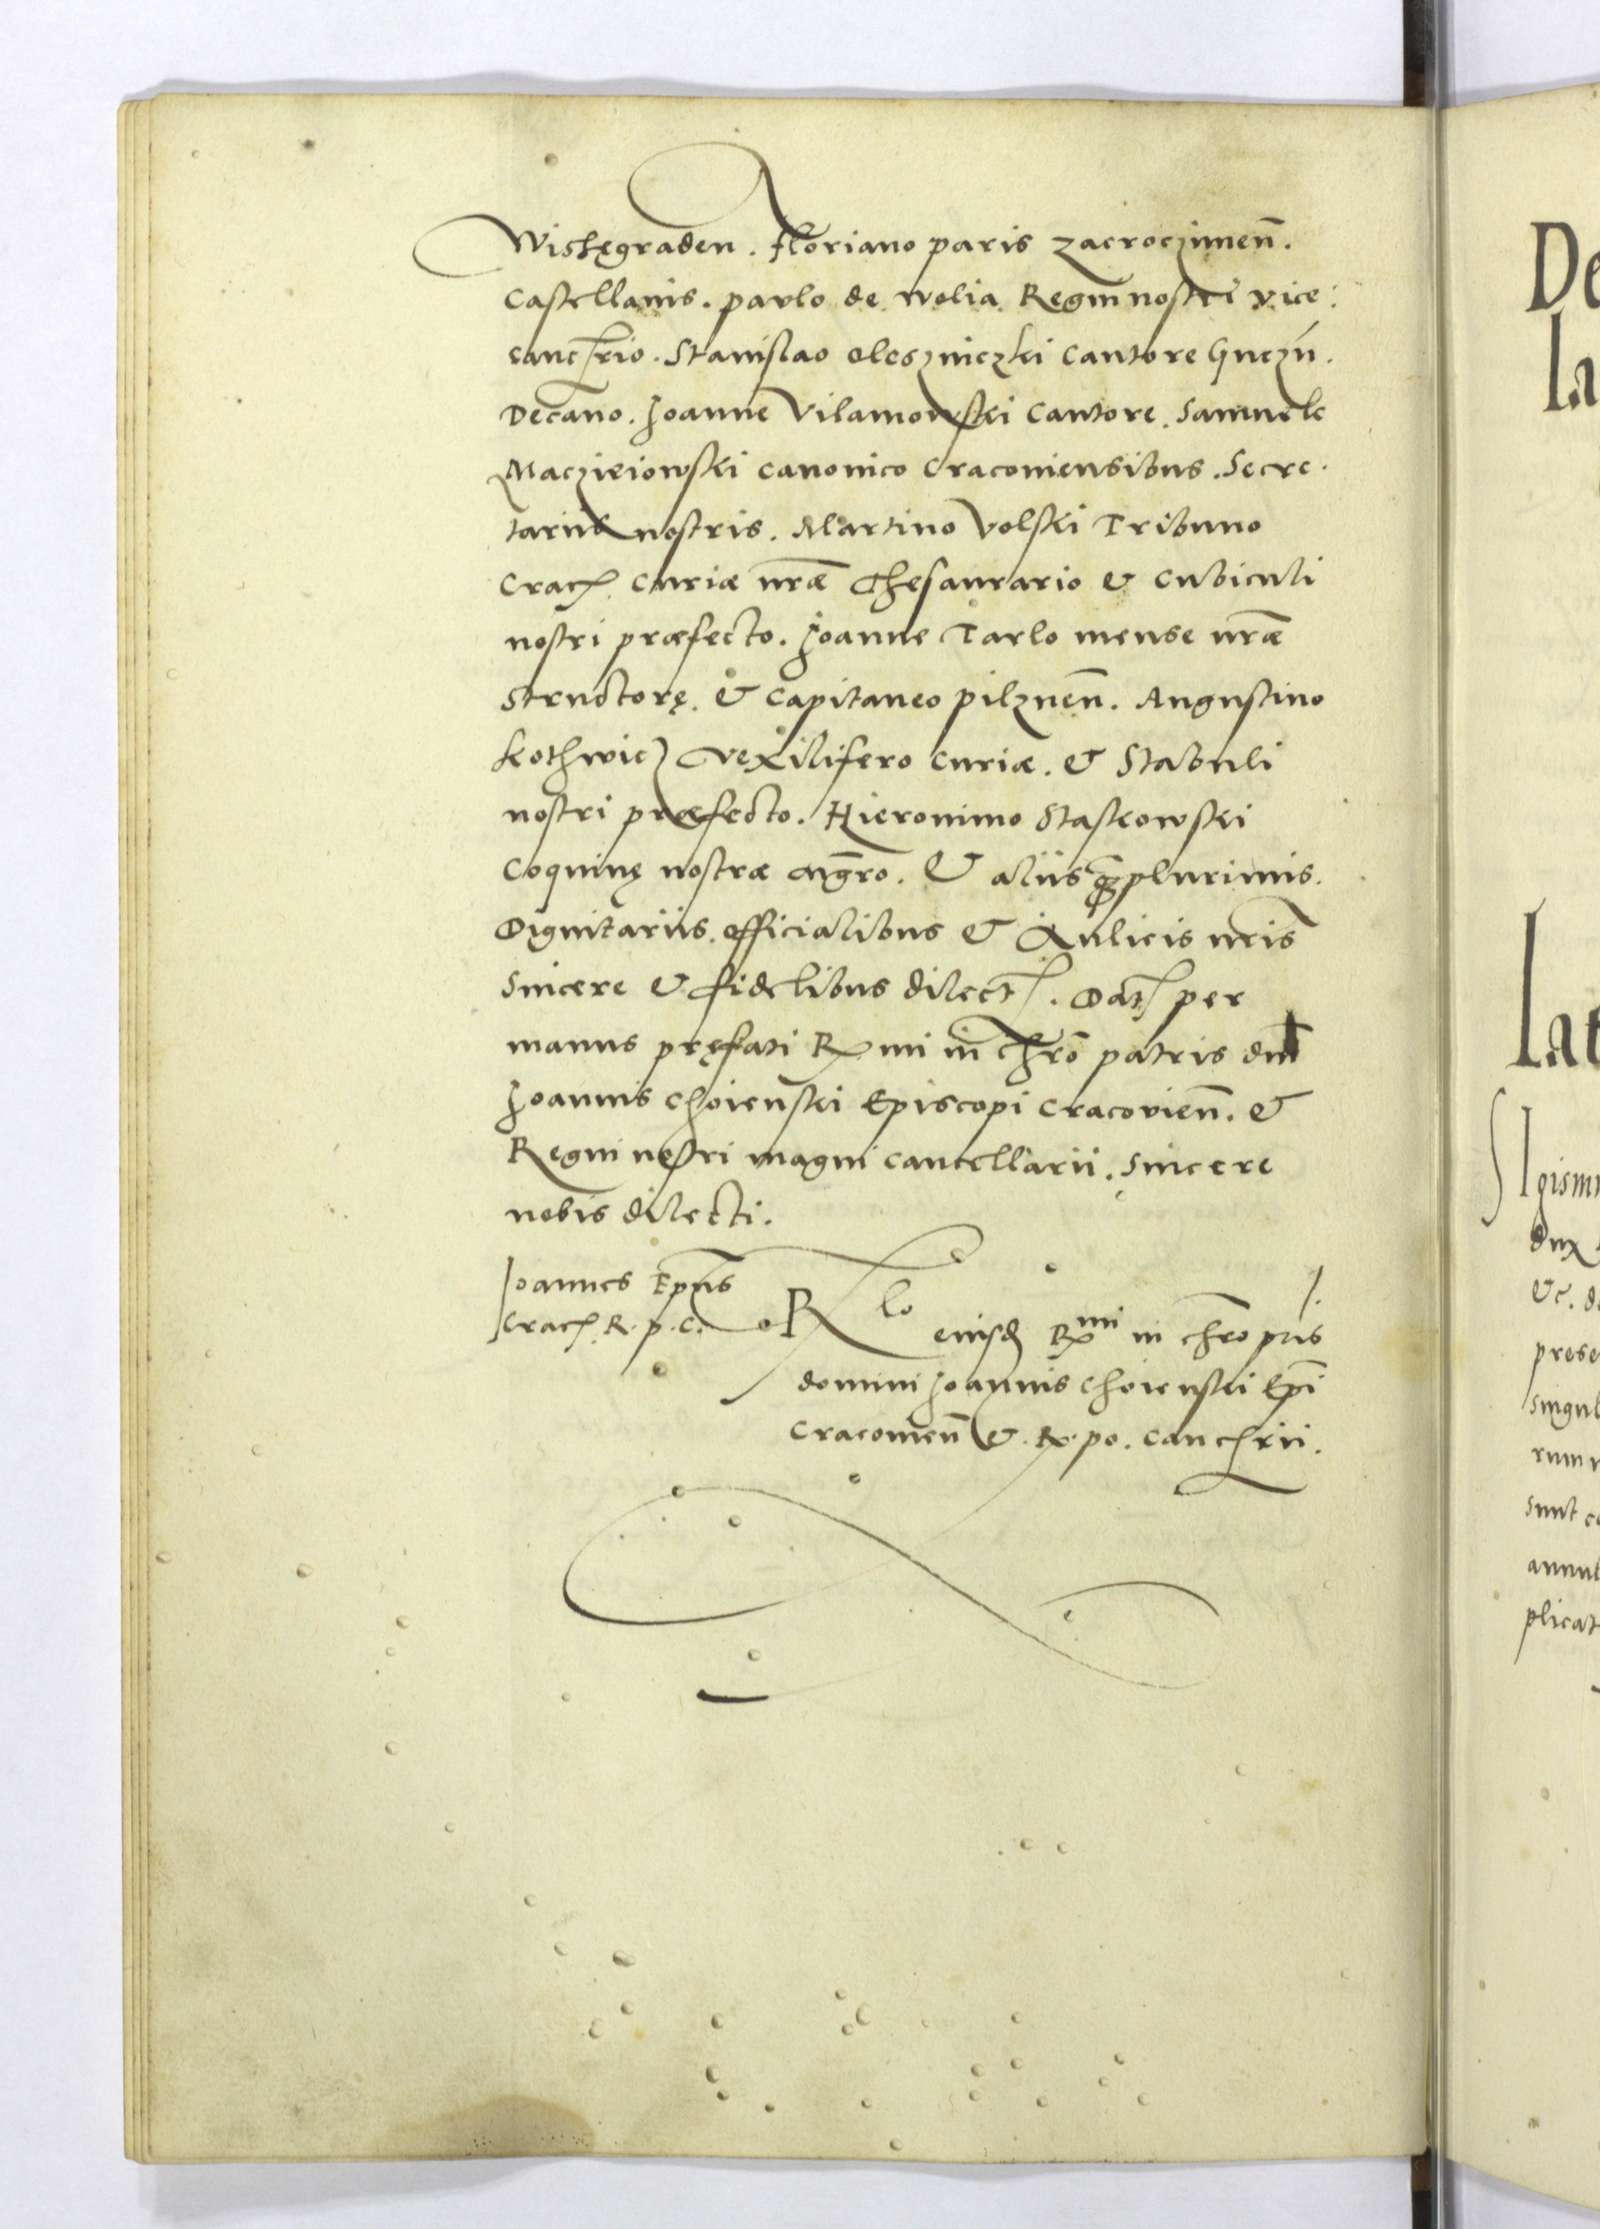 Wishęgraden. floriano paris zacroczimen̄.
Castellanis. paulo de wolia Regni nostri vice:
cancᷓrio. Stanislao oleszniczki Cantore Gnezń.
Decano. Joanne Vilamowski Cantore. Samuele
Maczieiowski canonico Cracoviensibus. Secre-
tariis nostris. Martino Volski Tribuno
Crac. Curiæ nr̄æ Thesaurario & cubiculi
nostri præfecto. Joanne Tarlo mense nr̄æ
Structorę. & Capitaneo pilznen̄. Augustino
kothwicz vexilifero curiæ. & Stabuli
nostri præfecto. Hieronimo Staskowski
Coquinę nostræ mgr̄o. & aliis ꝙplurimis.
Dignitariis. officialibus & Aulicis nr̄is
sincere & fidelibus dilect. Dat per
manus pręfati R mi in chr̄o patris dni
Joannis Choienski Episcopi Cracovien̄. &
Regni nostri magni cancellarii. sincere
nobis dilecti.
Joannes Ep̄us
Crac. R. p. C.
Rlo eiusd Rmi in chr̄o pr̄is
domini Joannis choienski Ep̄i
Cracovien̄ & R. po. cancrii.
De
la
Iat
SIgism
dux
&c. d
prese
singul
rum
sunt co
annul
plicat